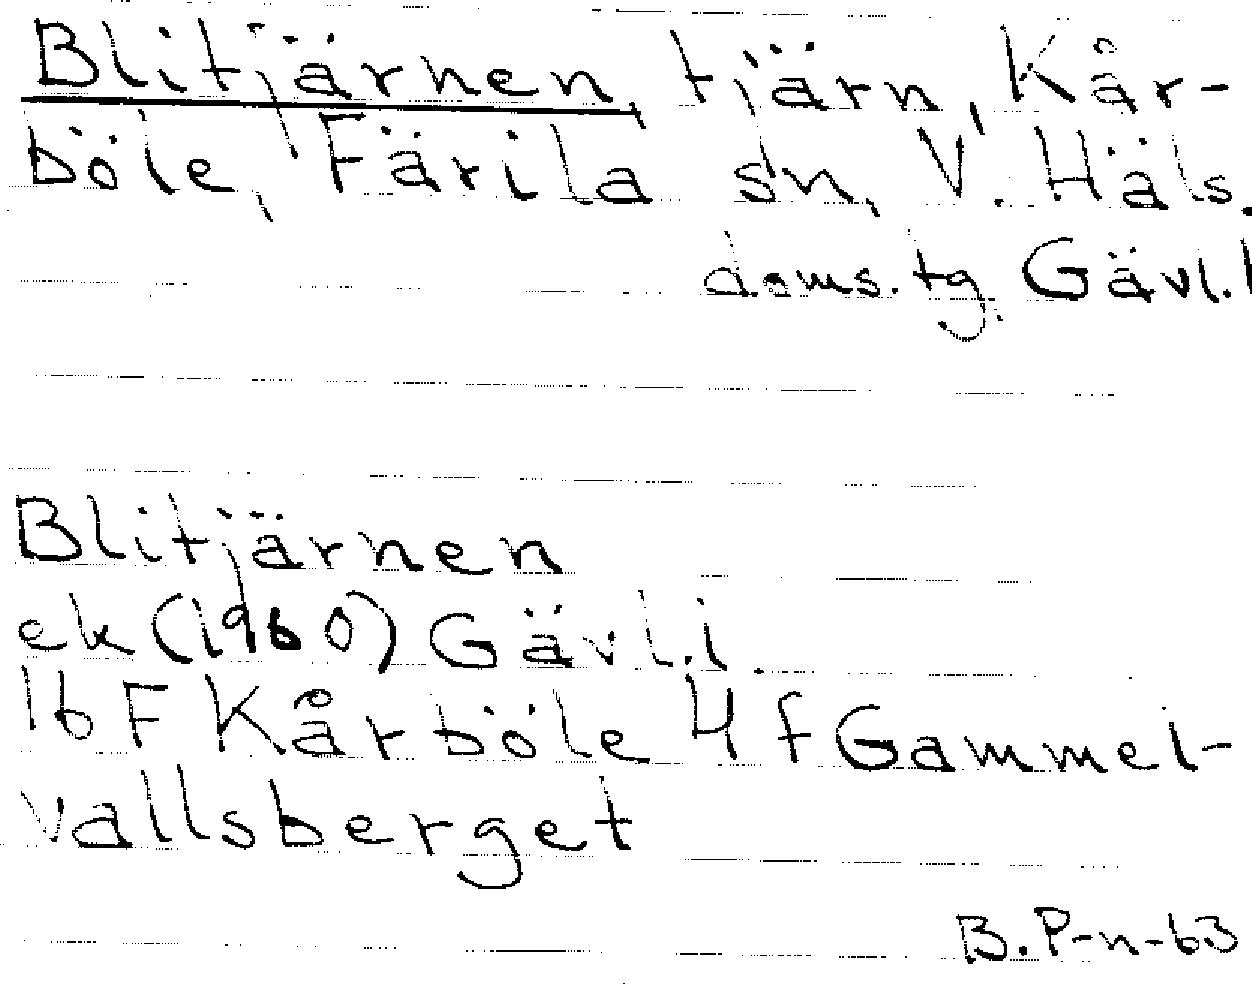 Blitjärnen, tjärn, Kår-
böle, Färila sn, V. Häls.
doms. tg. Gävl. l
Blitjärnen
ek (1960) Gävl. l
16 F Kårböle 4 f Gammel-
vallsberget
B. P-n-63